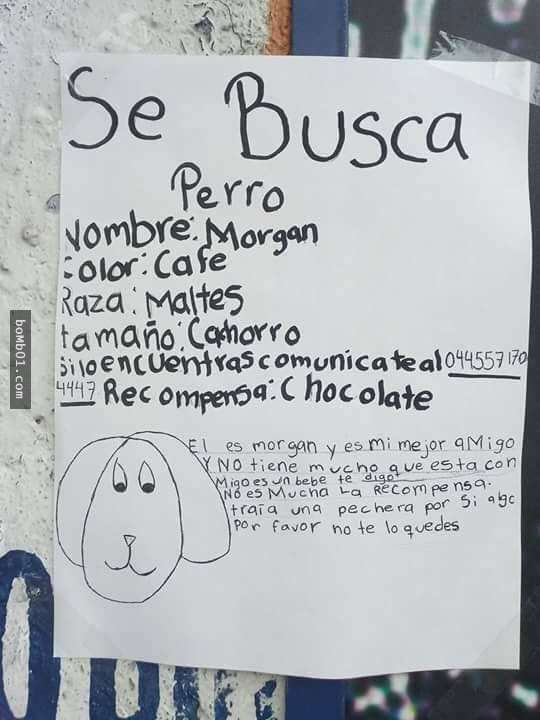 Se Busca
Perro
Nombre: Morgan
Color: Cafe
Raza: Maltes
tamaño: Cachorro
Si lo encuentras comunicate al 044557170
4447 Recompensa: Chocolate
El es morgan y es mi mejor aMigo
Y NO tiene mucho que esta con
Migo es un bebe te digo
No es Mucha La Recompensa.
traía una pechera por si algo
Por favor no te lo quedes
boMb01.com